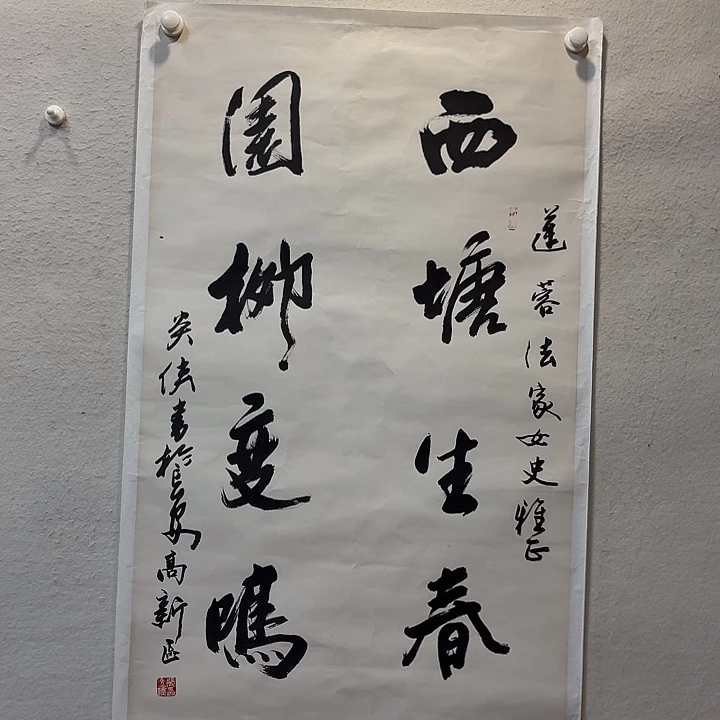 蓮蓉法家女史雅正
西塘生春
園柳變鳴
書於長安高新區